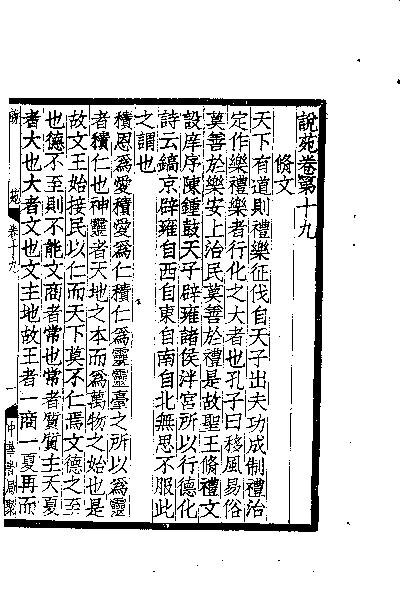 說苑卷第十九
脩文
天下有道則禮樂征伐自天子出夫功成制禮治
定作樂禮樂者行化之大者也孔子曰移風易俗
莫善於樂安上治民莫善於禮是故聖王脩禮文
設庠序陳鍾鼓天子辟雍諸侯泮宮所以行德化
詩云鎬京辟雍自西自東自南自北無思不服此
之謂也
積恩爲愛積愛爲仁積仁爲靈靈臺之所以爲靈
者積仁也神靈者天地之本而爲萬物之始也是
故文王始接民以仁而天下莫不仁焉文德之至
也德不至則不能文商者常也常者質質主天夏
者大也大者文也文主地故王者一商一夏再而
說苑 卷十九 一 中華書局聚